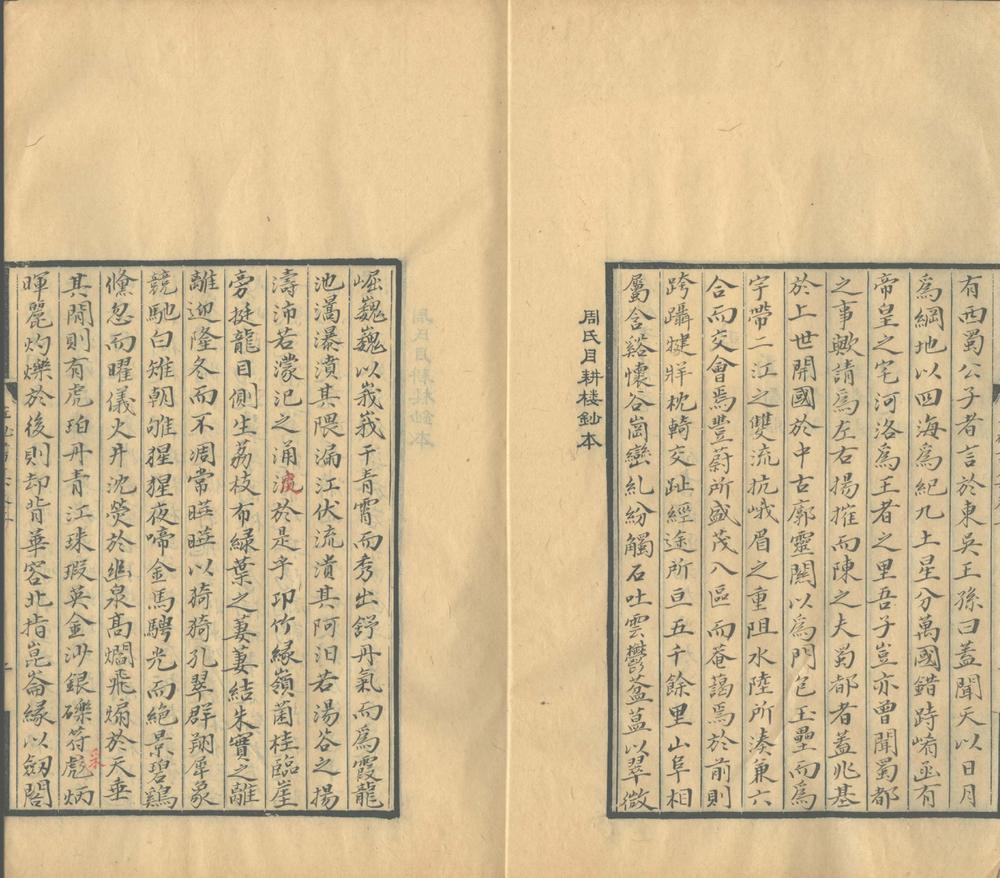 有西蜀公子者言於東吳王孫曰蓋聞天以日月
爲綱地以四海爲紀九土星分萬國錯跱崤函有
帝皇之宅河洛爲王者之里吾子豈亦曾聞蜀都
之事歟請爲左右揚搉而陳之夫蜀都者蓋兆基
於上世開國於中古廓靈關以爲門包玉壘而爲
宇帶二江之雙流抗峨眉之重阻水陸所湊兼六
合而交會焉豐蔚所盛茂八區而菴藹焉於前則
跨躡犍牂枕輢交趾經途所亘五千餘里山阜相
屬含谿懷谷崗巒糺紛觸石吐雲鬱葐蒕以翠微
周氏目耕楼鈔本
崛巍巍以峩峩干青霄而秀出舒丹氣而爲霞龍
池瀥瀑濆其隈漏江伏流潰其阿汨若湯谷之揚
濤沛若濛汜之涌波於是乎卭竹緣嶺菌桂臨崖
旁挺龍目側生荔枝布綠葉之萋萋結朱實之離
離迎隆冬而不凋常曄曄以猗猗孔翠群翔犀象
競馳白雉朝雊猩猩夜啼金馬騁光而絕景碧鷄
儵忽而曜儀火井沈熒於幽泉高爓飛煽於天垂
其間則有虎珀丹青江珠瑕英金沙銀礫符彪炳
采
暉麗灼爍於後則却背華容北指崑崙緣以劒閣